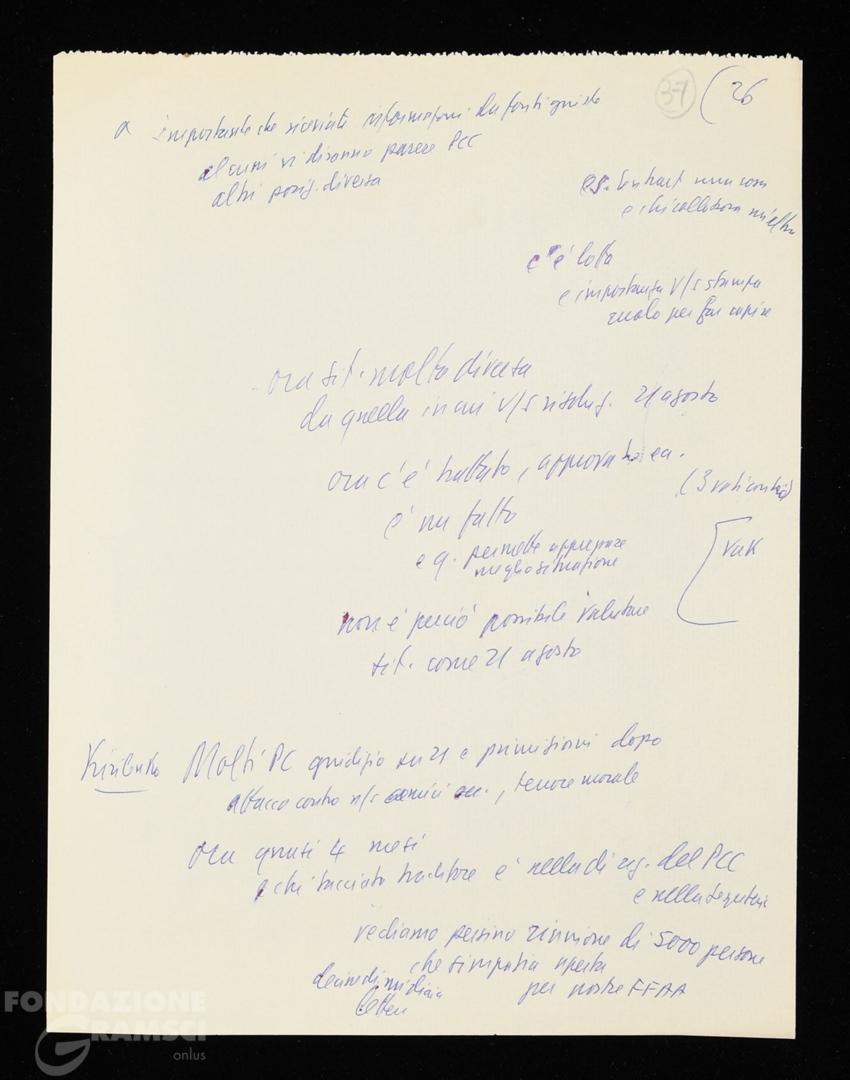 37 ( 26
α importante che riceviate informazioni da fonti giuste
alcuni vi diranno parere PCC
altri posiz. diversa
es. una cosa
e chi collabora un'altra
c'è lotta
e importanza v/s stampa
ruolo per far capire
ora sit. molto diversa
da quella in cui v/s risoluz. 21 agosto
ora c'è trattato, approvato ea.
(3 voti contrari)
è un fatto
e q. permette apprezzare
meglio situazione
Vak
non è perciò possibile valutare
sit. come 21 agosto
Kirilenko Molti PC giudizio su 21 e primi giorni dopo
attacco contro n/s amici, terrore morale
ora quasi 4 mesi
e chi tacciato traditore è nella direz. del PCC
e nella segreteria
vediamo persino riunione di 5000 persone
che simpatia aperta
per nostre FFAA
decine di migliaia
lettere
FONDAZIONE
GRAMSCI
onlus